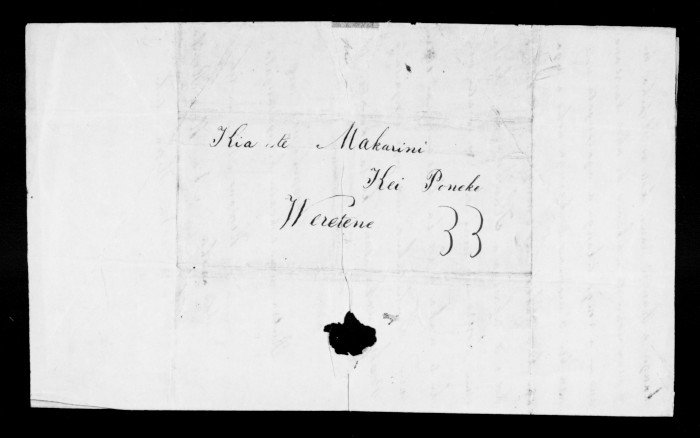 Kia te Makarini
Kei Poneke
Weretene 33